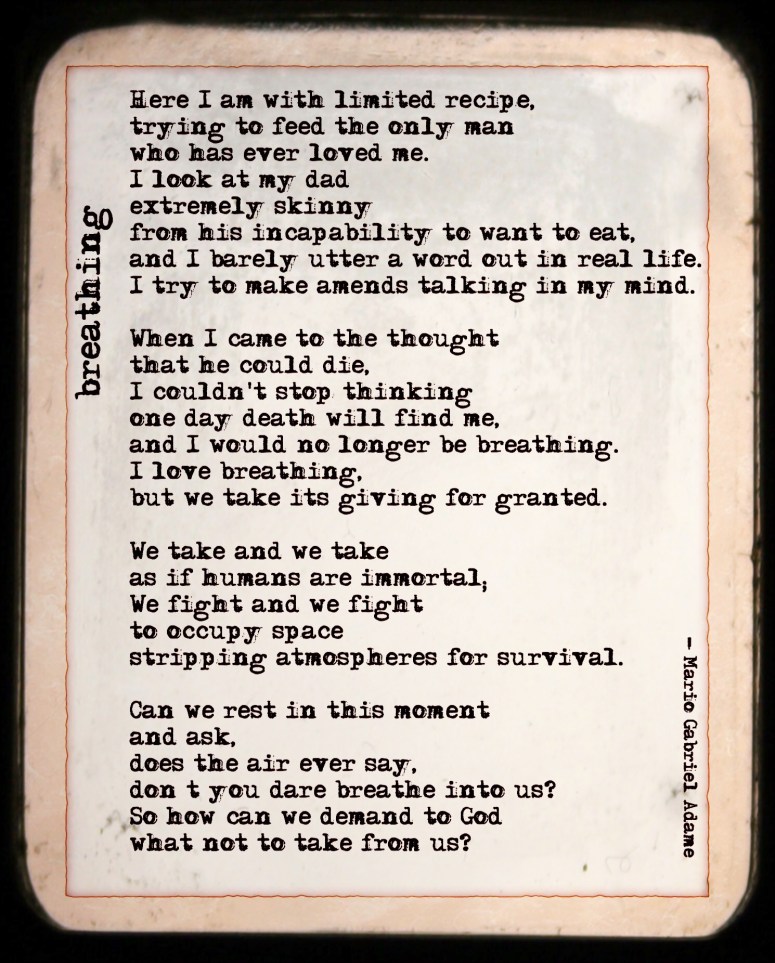 breathing
Here I am with limited recipe,
trying to feed the only man
who has ever loved me.
I look at my dad
extremely skinny
from his incapability to want to eat,
and I barely utter a word out in real life.
I try to make amends talking in my mind.
When I came to the thought
that he could die,
I couldn't stop thinking
one day death will find me,
and I would no longer be breathing.
I love breathing,
but we take its giving for granted.
We take and we take
as if humans are immortal;
We fight and we fight
to occupy space
stripping atmospheres for survival.
Can we rest in this moment
and ask,
does the air ever say,
don t you dare breathe into us?
So how can we demand to God
what not to take from us?
– Mario Gabriel Adame